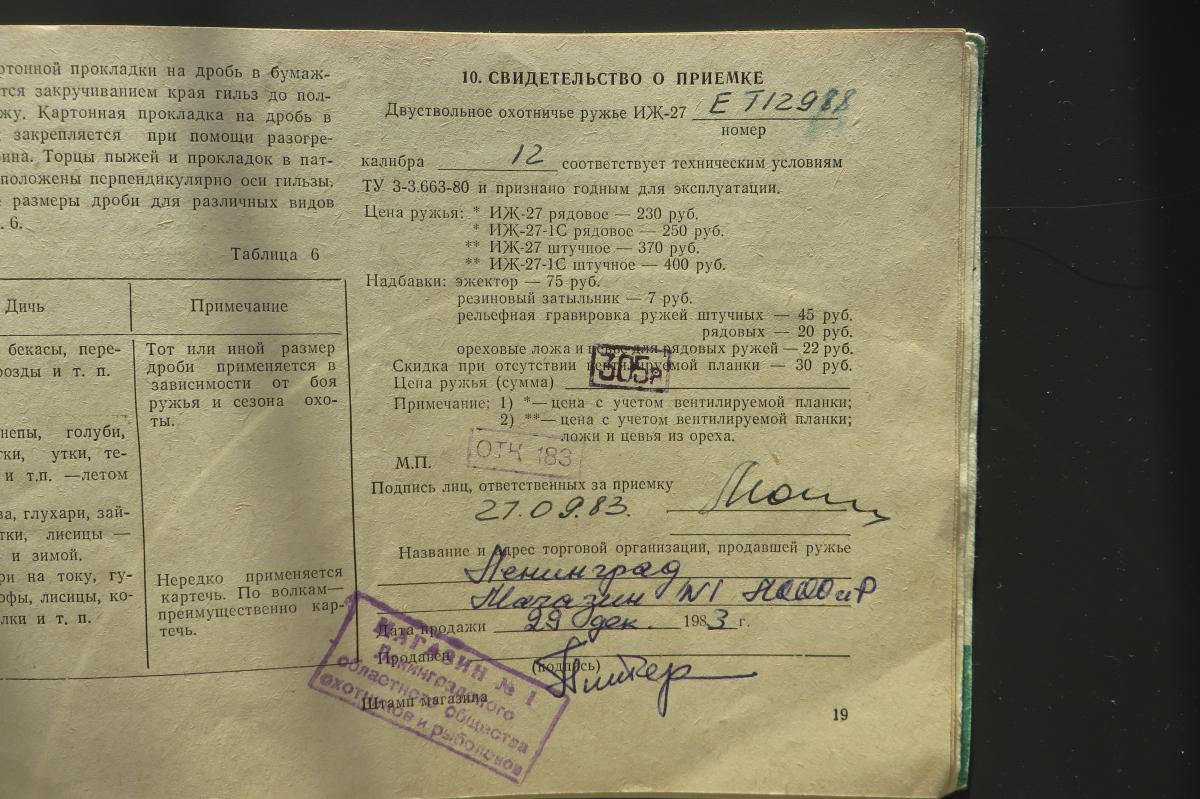 ртонной прокладки на дробь в бумаж-
тся закручиванием края гильз до пол-
жу. Картонная прокладка на дробь в
закрепляется при помощи разогре-
ина. Торцы пыжей и прокладок в пат-
положены перпендикулярно оси гильзы.
размеры дроби для различных видов
. 6.
Таблица 6
Дичь
Примечание
бекасы, пере-
розды и т. п.
Тот или иной размер
дроби применяется в
зависимости от боя
ружья и сезона охо-
ты.
непы, голуби,
тки, утки, те-
и т.п. —летом
ва, глухари, зай-
тки, лисицы —
и зимой.
ри на току, гу-
офы, лисицы, ко-
лки и т. п.
Нередко применяется
картечь. По волкам—
преимущественно кар-
течь.
10. СВИДЕТЕЛЬСТВО О ПРИЕМКЕ
Двуствольное охотничье ружье ИЖ-27 ЕТ12988
номер
калибра 12 соответствует техническим условиям
ТУ 3-3.663-80 и признано годным для эксплуатации.
Цена ружья: * ИЖ-27 рядовое — 230 руб.
* ИЖ-27-1С рядовое — 250 руб.
** ИЖ-27 штучное — 370 руб.
** ИЖ-27-1С штучное — 400 руб.
Надбавки: эжектор — 75 руб.
резиновый затыльник — 7 руб.
рельефная гравировка ружей штучных — 45 руб.
рядовых — 20 руб.
ореховые ложа и цевье для рядовых ружей — 22 руб.
Скидка при отсутствии вентилируемой планки — 30 руб.
305р
Цена ружья (сумма)
Примечание: 1) *— цена с учетом вентилируемой планки;
2) **— цена с учетом вентилируемой планки;
ложи и цевья из ореха.
ОТК 183
М.П.
Подпись лиц, ответственных за приемку
27.09.83.
Название и адрес торговой организации, продавшей ружье
Ленинград
Магазин N1 ЛООО и Р
Дата продажи 29 дек. 1983 г.
Продавец
(подпись)
Штамп магазина
МАГАЗИН № 1
Ленинградского
областного общества
охотников и рыболовов
19